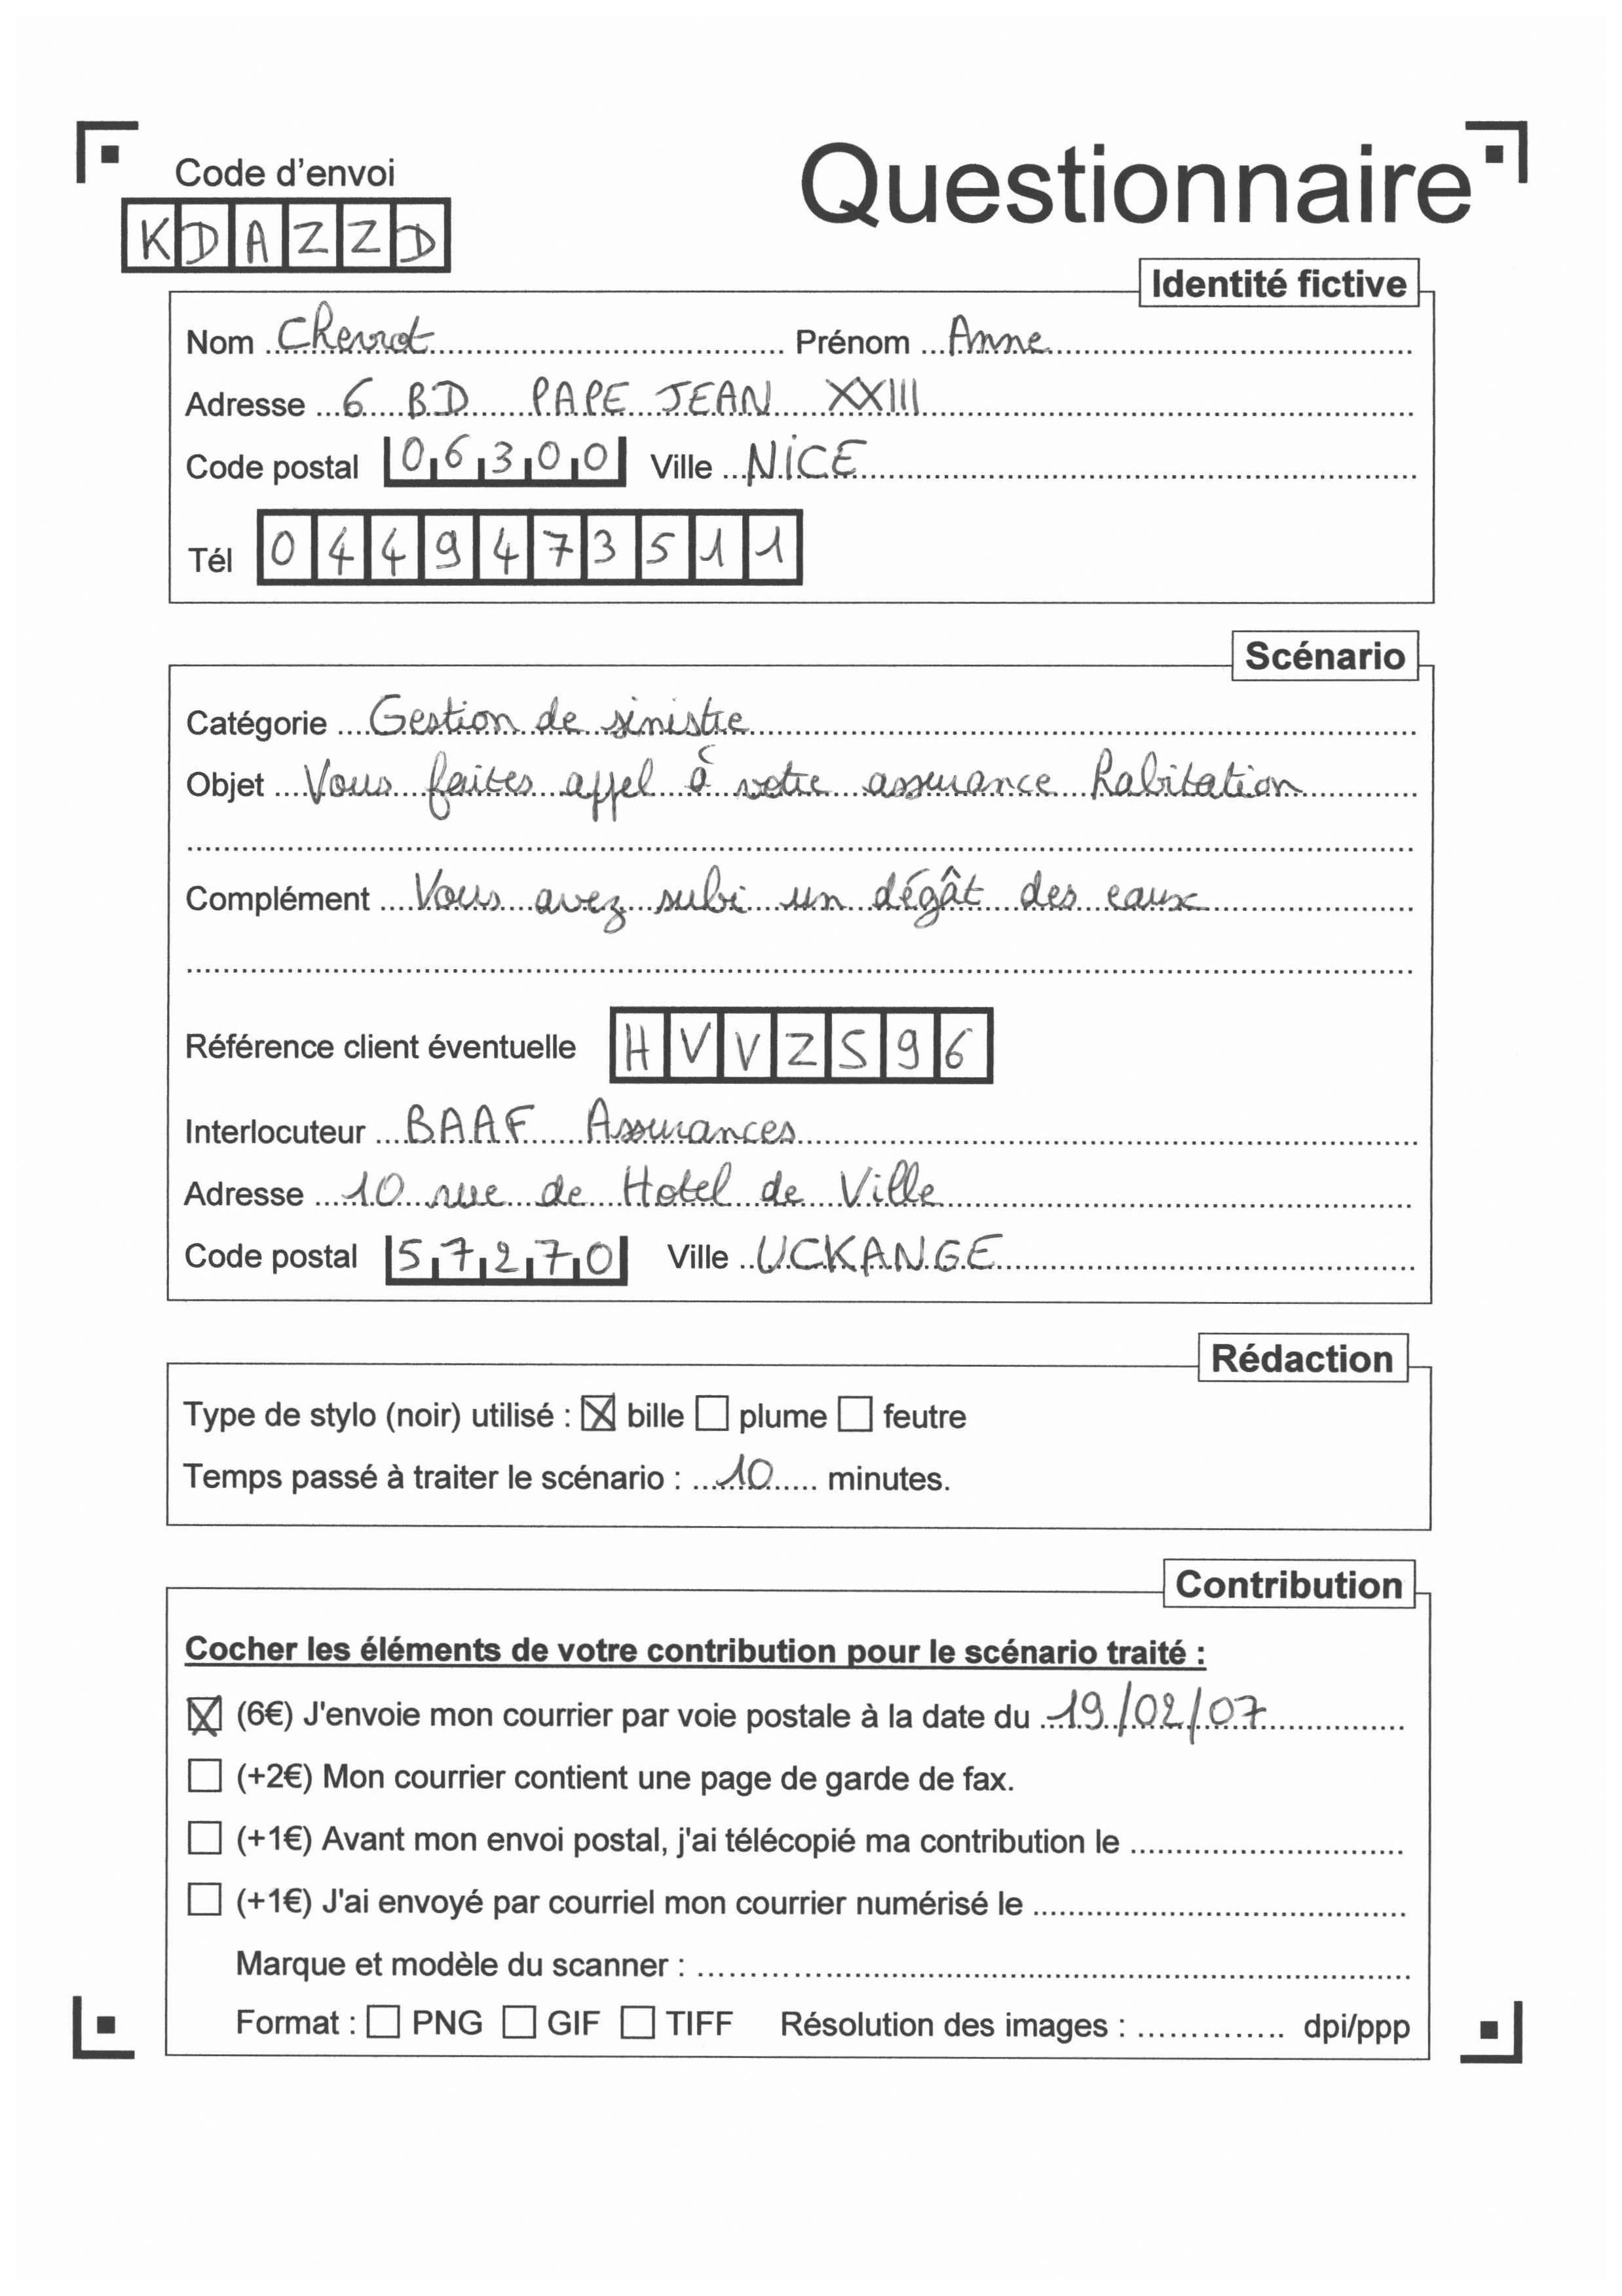 Code d'envoi
KDAZZD
Questionnaire
Identité fictive
Nom Cherrot Prénom Anne
Adresse 6 BD PAPE JEAN XXIII
Code postal 06300 Ville NICE
Tél 0449473511
Scénario
Catégorie Gestion de sinistre
Objet Vous faites appel à votre assurance habitation
Complément Vous avez subi un dégât des eaux
Référence client éventuelle HVVZS96
Interlocuteur BAAF Assurances
Adresse 10 rue de Hotel de Ville
Code postal 57270 Ville UCKANGE
Rédaction
Type de stylo (noir) utilisé : ☒ bille ☐ plume ☐ feutre
Temps passé à traiter le scénario : 10 minutes.
Contribution
Cocher les éléments de votre contribution pour le scénario traité :
☒ (6€) J'envoie mon courrier par voie postale à la date du 19/02/07
☐ (+2€) Mon courrier contient une page de garde de fax.
☐ (+1€) Avant mon envoi postal, j'ai télécopié ma contribution le
☐ (+1€) J'ai envoyé par courriel mon courrier numérisé le
Marque et modèle du scanner :
Format : ☐ PNG ☐ GIF ☐ TIFF Résolution des images : dpi/ppp